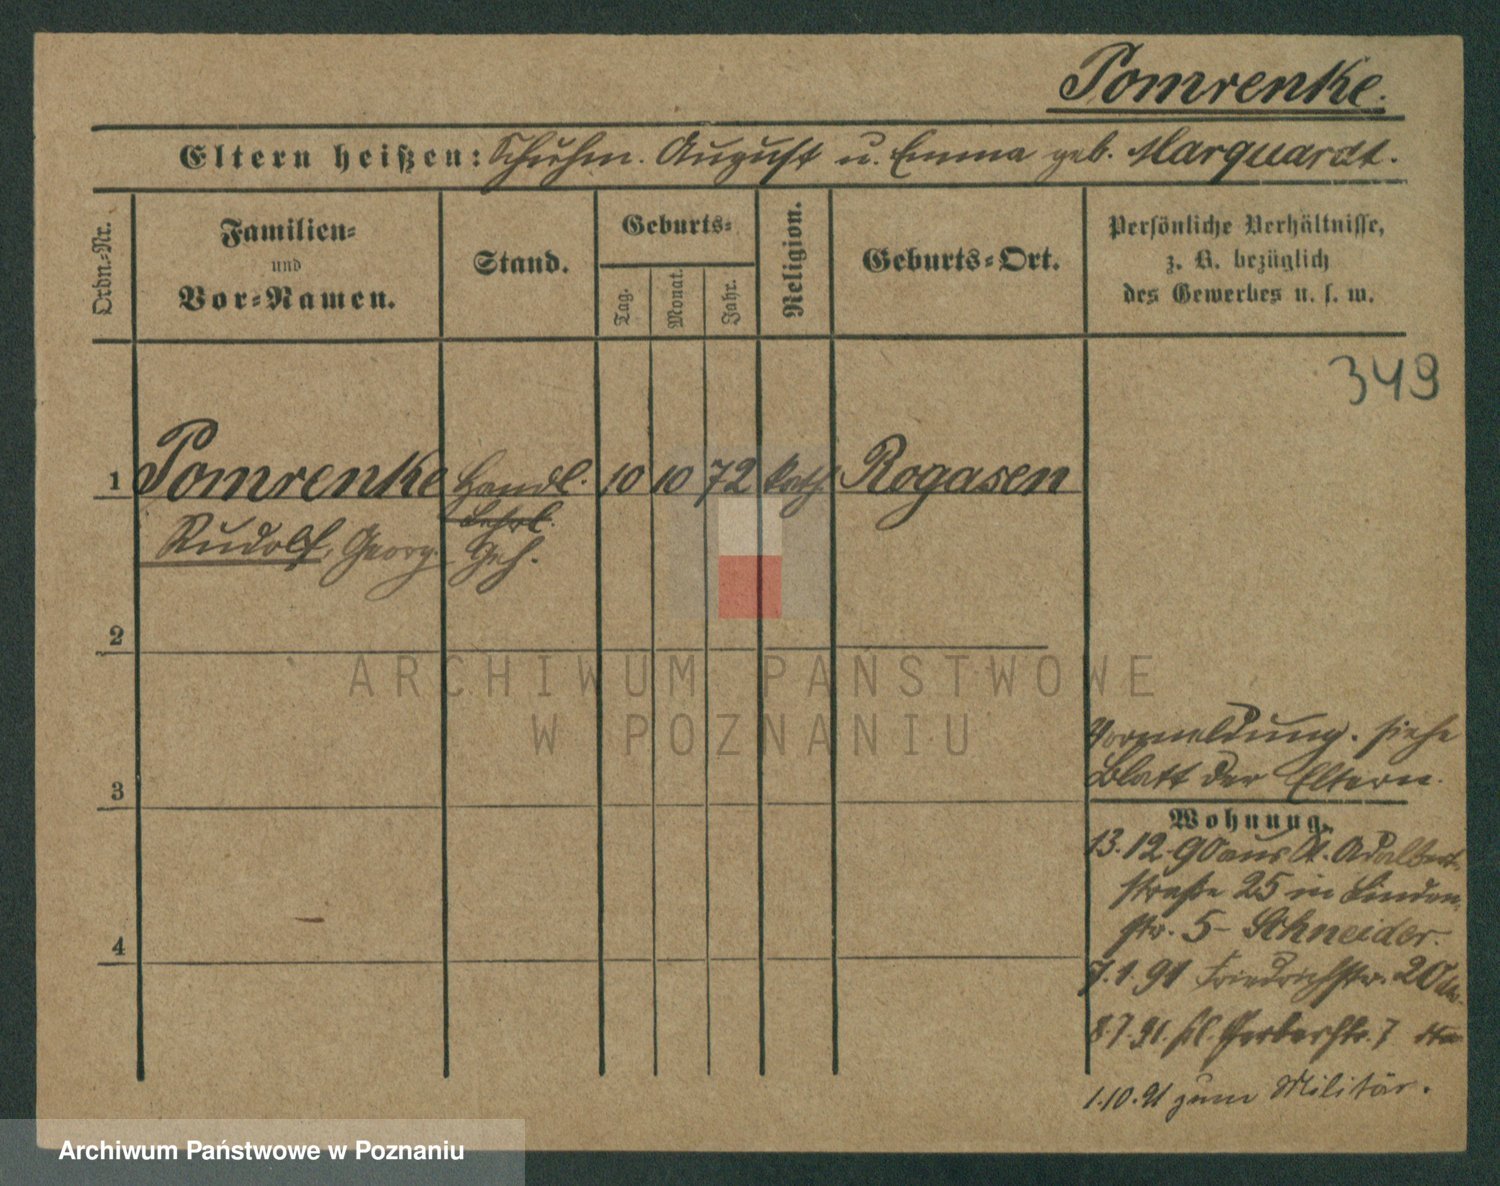 Pomrenke.
Eltern heißen: Schuhm. August u. Emma geb. Marquardt.
Ordn.-Nr.
Familien-
und
Vor-Namen.
Stand.
Geburts-
Tag.
Monat.
Jahr.
Religion.
Geburts-Ort.
Persönliche Verhältnisse,
z. B. bezüglich
des Gewerbes u. s. w.
349
1 Pomrenke Handl. 10 10 72 kath Rogasen
Lehrl.
Rudolf, Georg. Geh.
2
ARCHIWUM PAŃSTWOWE
W POZNANIU
Vormeldung. siehe
Blatt der Eltern.
3
Wohnung.
13.12.90 aus St. Adalbert-
straße 25 in Linden-
str. 5 - Schneider.
4
7.1.91 Friedrichstr. 20
8.7.91. kl. Gerberstr. 7
1.10.91 zum Militär.
Archiwum Państwowe w Poznaniu